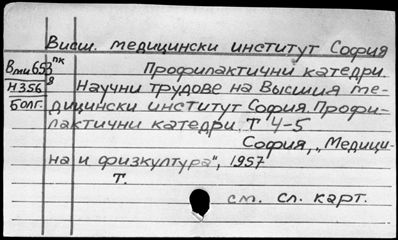 Висш. медицински институт София
Вми 653 пк
8
Профилактични катедри.
Н356
Научни трудове на Высшия ме-
Болг.
дицински институт София. Профи-
лактични катедри. Т 4-5
София, „Медици-
на и физкултура", 1957
Т.
см. сл. карт.